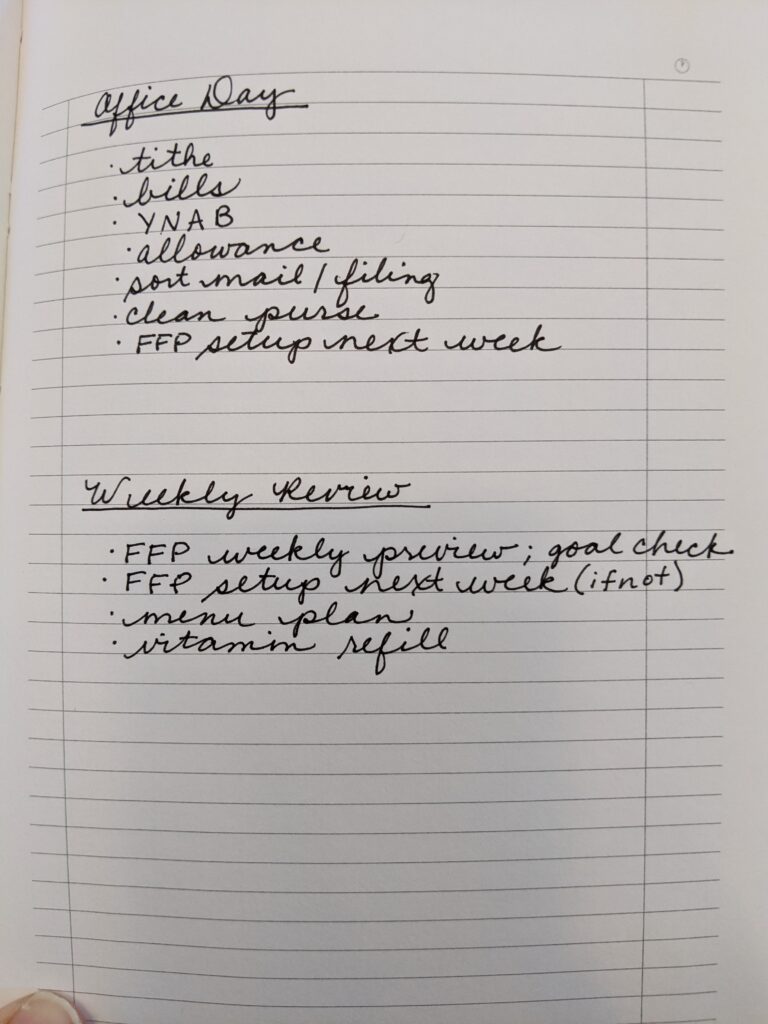 Office Day
· tithe
· bills
· YNAB
· allowance
· sort mail / filing
· clean purse
· FFP setup next week
Weekly Review
· FFP weekly preview; goal check
· FFP setup next week (if not)
· menu plan
· vitamin refill